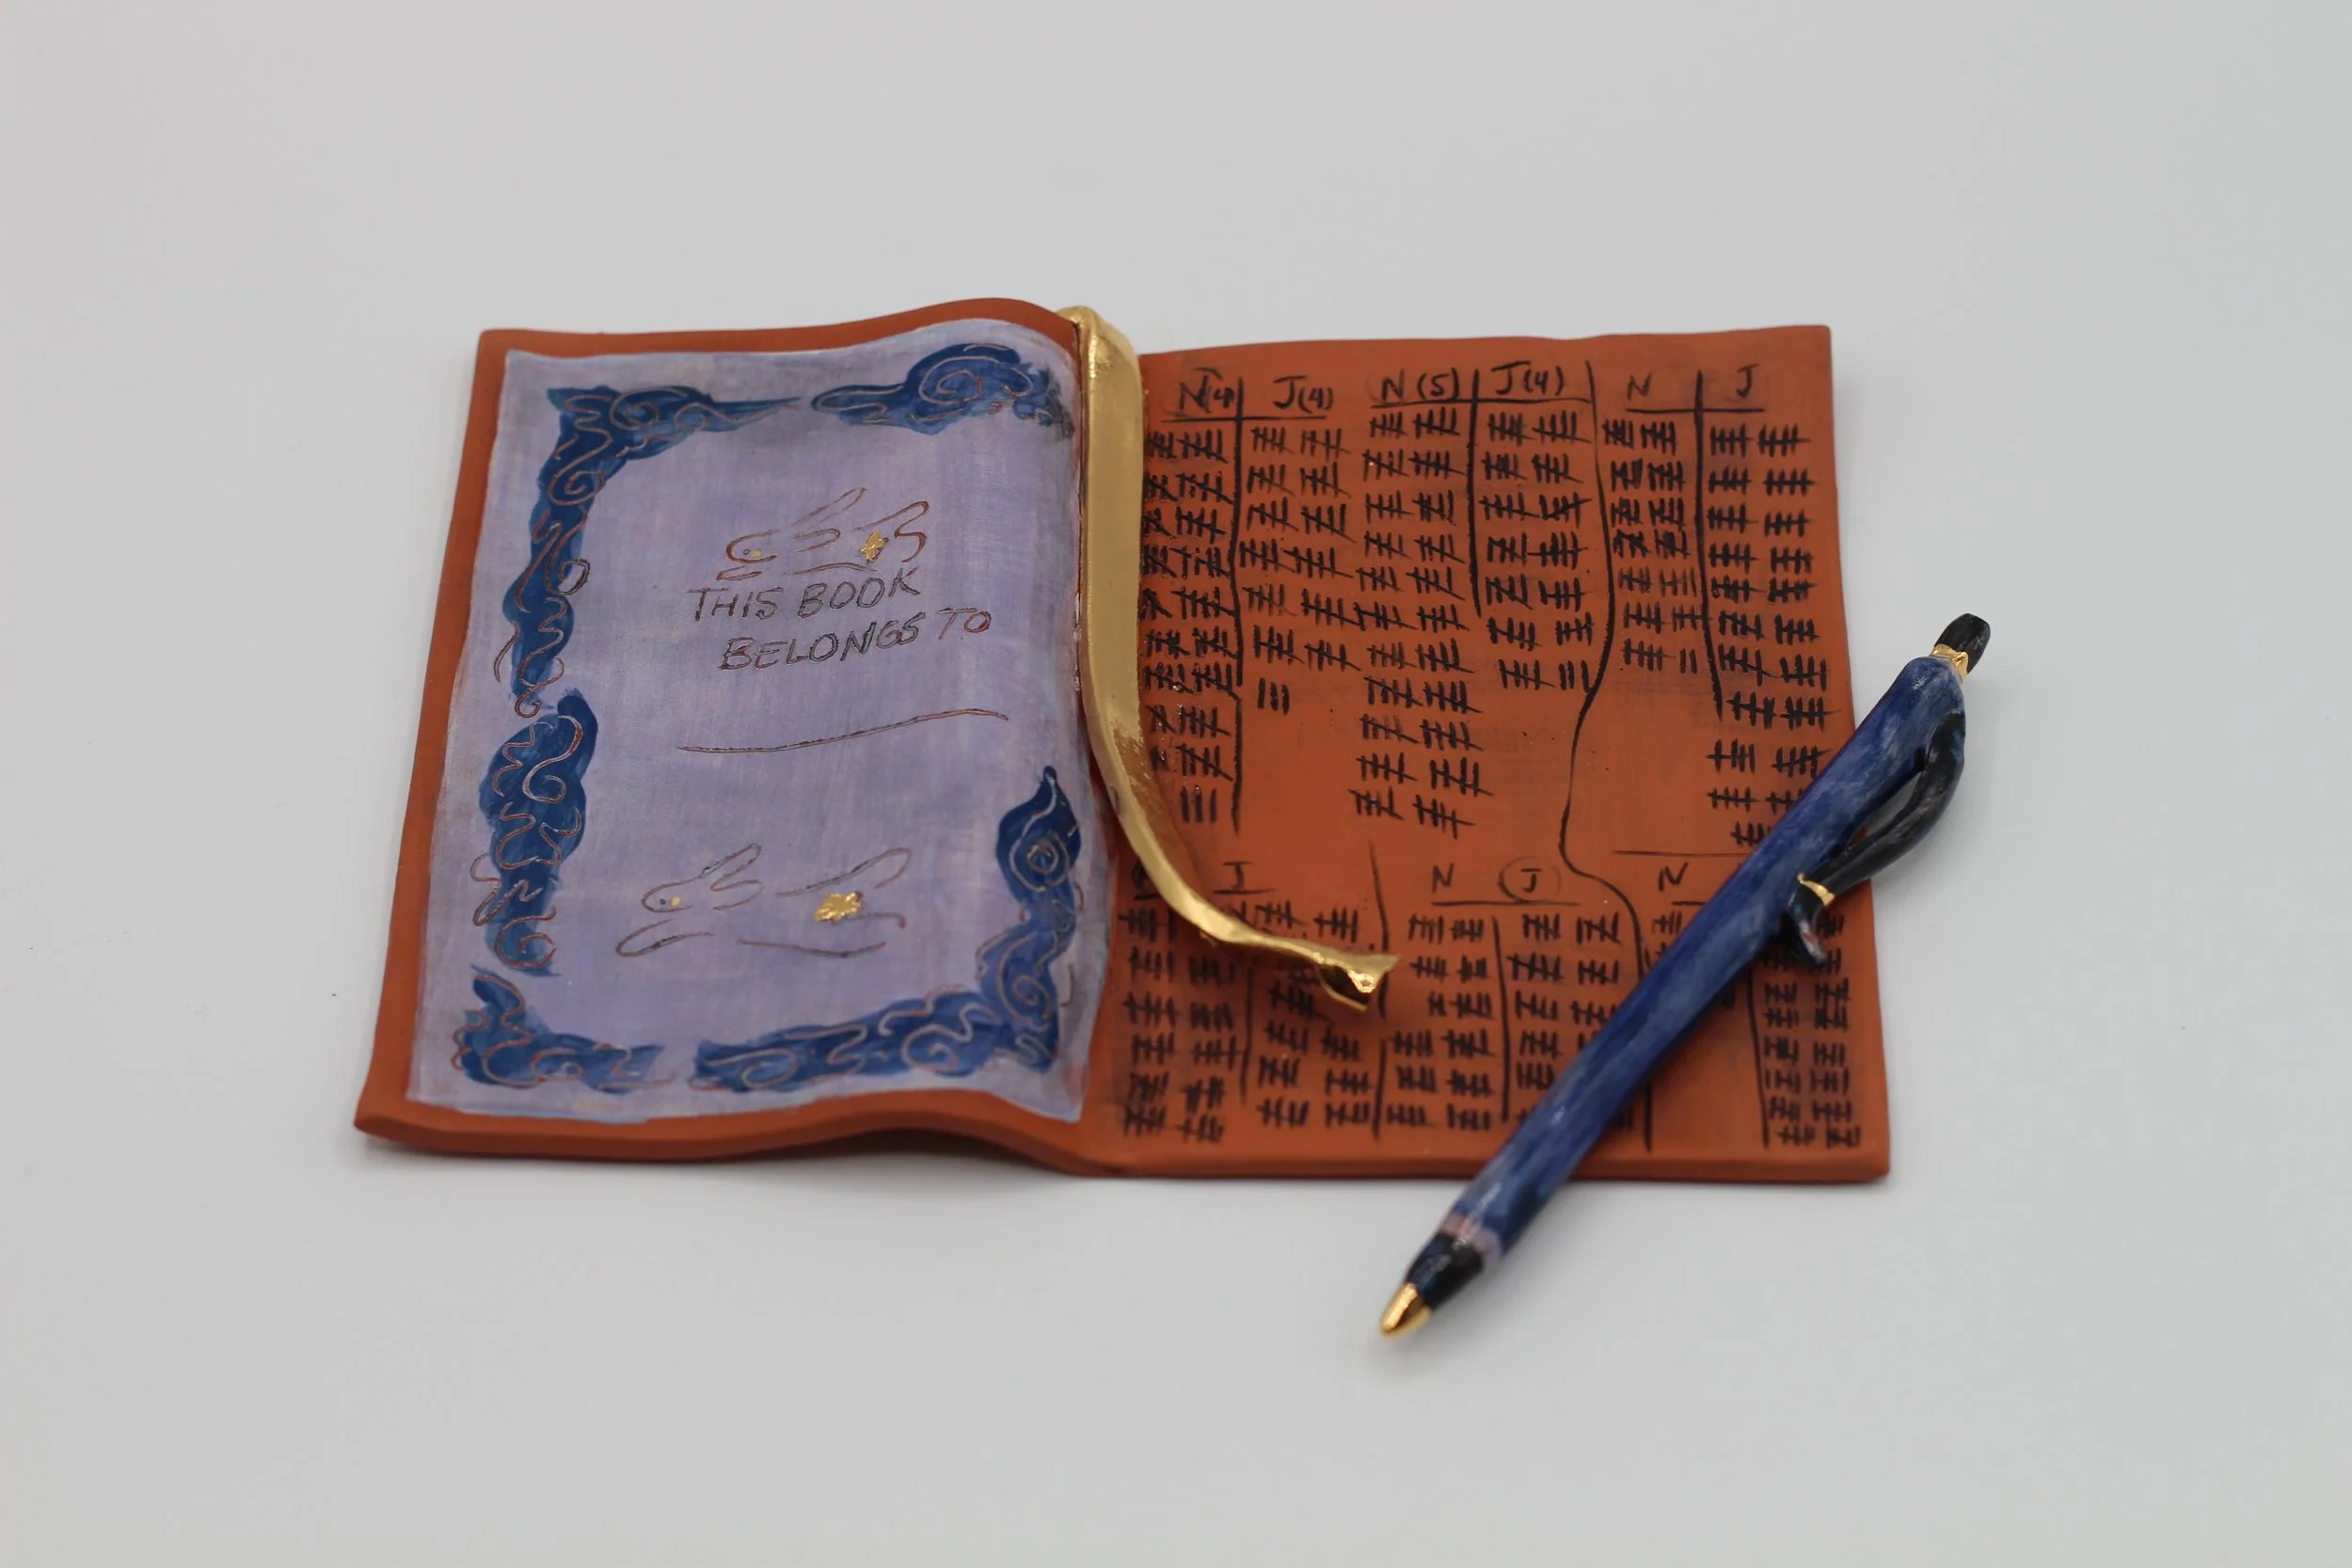 THIS BOOK
BELONGS TO
N(4) J(4) N(5) J(4) N J
J N J N